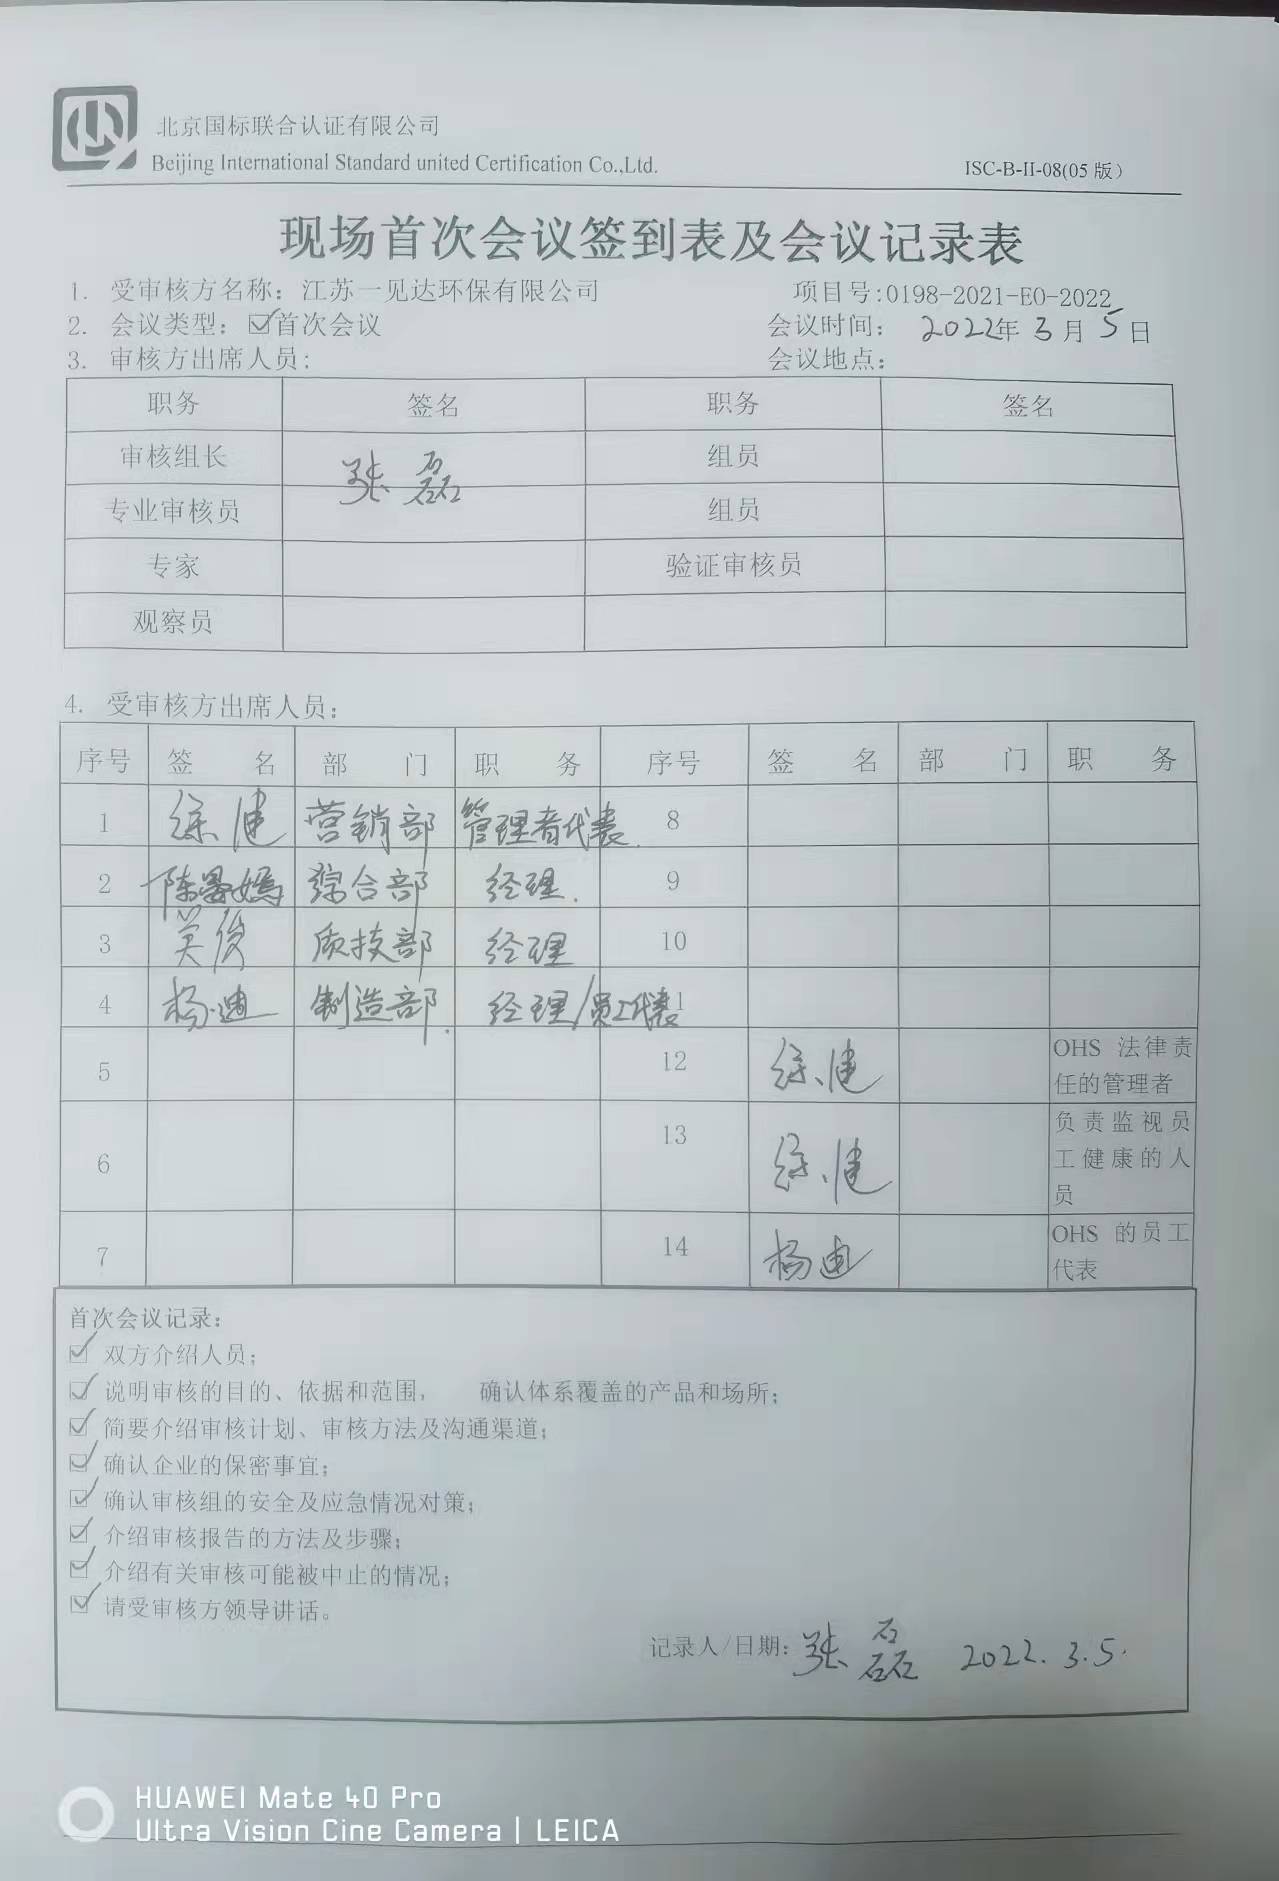 北京国标联合认证有限公司
Beijing International Standard united Certification Co.,Ltd.
ISC-B-II-08(05 版)
现场首次会议签到表及会议记录表
1. 受审核方名称：江苏一见达环保有限公司 项目号:0198-2021-EO-2022
2. 会议类型：☑首次会议 会议时间： 2022年 3 月 5 日
3. 审核方出席人员: 会议地点：
职务 签名 职务 签名
审核组长 张磊 组员
专业审核员 组员
专家 验证审核员
观察员
4. 受审核方出席人员：
序号 签 名 部 门 职 务 序号 签 名 部 门 职 务
1 徐健 营销部 管理者代表 8
2 陈 嫣 综合部 经理. 9
3 吴俊 质技部 经理 10
4 杨迪 制造部. 经理/员工代表 1
5 12 徐健 OHS 法律责
任的管理者
6 13 徐健 负责监视员
工健康的人
员
7 14 杨迪 OHS 的员工
代表
首次会议记录：
☑ 双方介绍人员；
☑ 说明审核的目的、依据和范围， 确认体系覆盖的产品和场所；
☑ 简要介绍审核计划、审核方法及沟通渠道；
☑ 确认企业的保密事宜；
☑ 确认审核组的安全及应急情况对策；
☑ 介绍审核报告的方法及步骤；
☑ 介绍有关审核可能被中止的情况；
☑ 请受审核方领导讲话。
记录人/日期: 张磊 2022.3.5.
HUAWEI Mate 40 Pro
Ultra Vision Cine Camera | LEICA